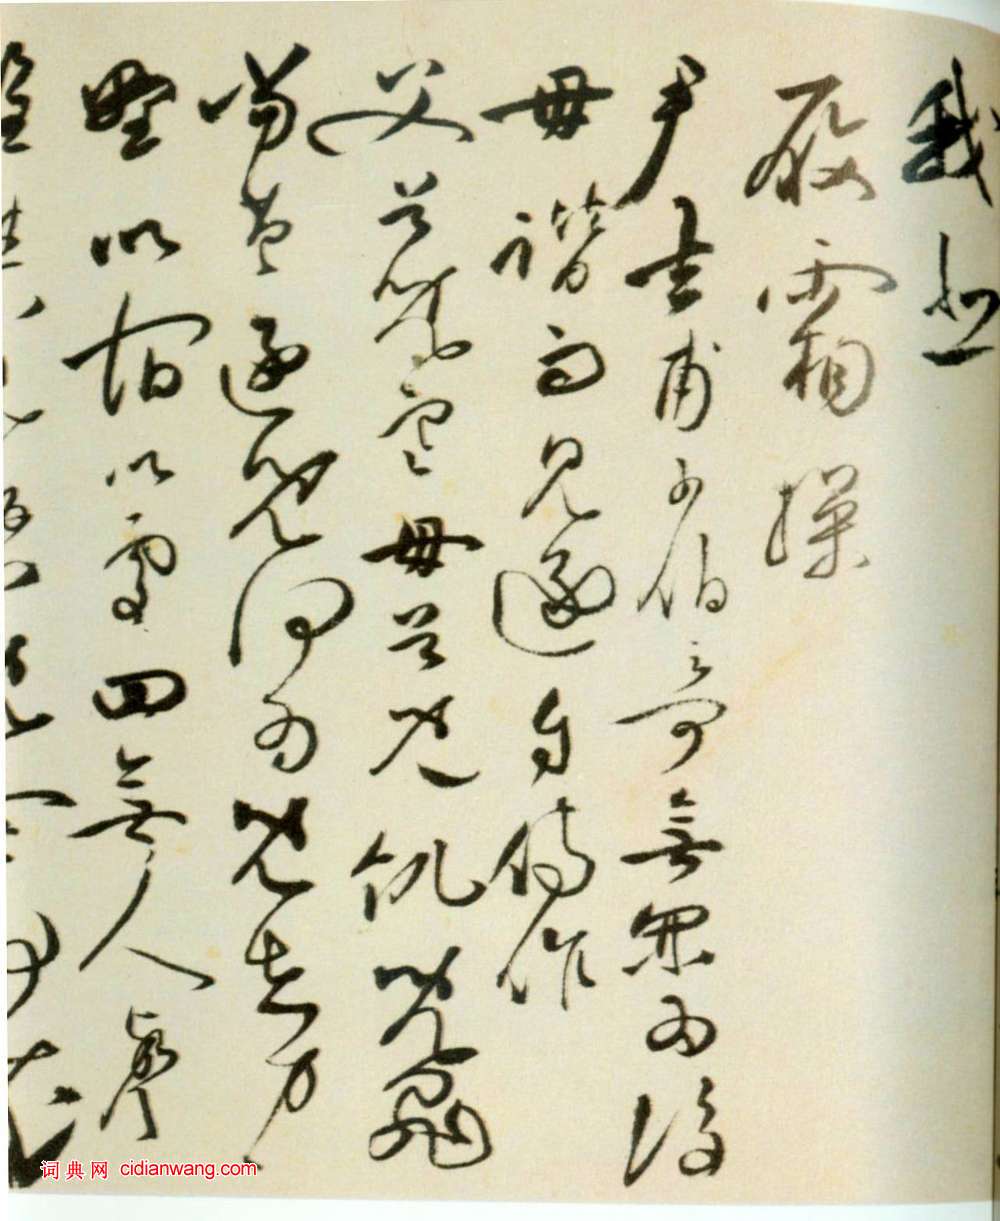 我悲
履霜操
尹吉甫子伯奇無罪為後
母譖而見逐自傷作
父兮兒寒母兮兒飢兒罪
當笞逐兒何為兒在中
野以宿以處四無人聲
词典网 cidianwang.com